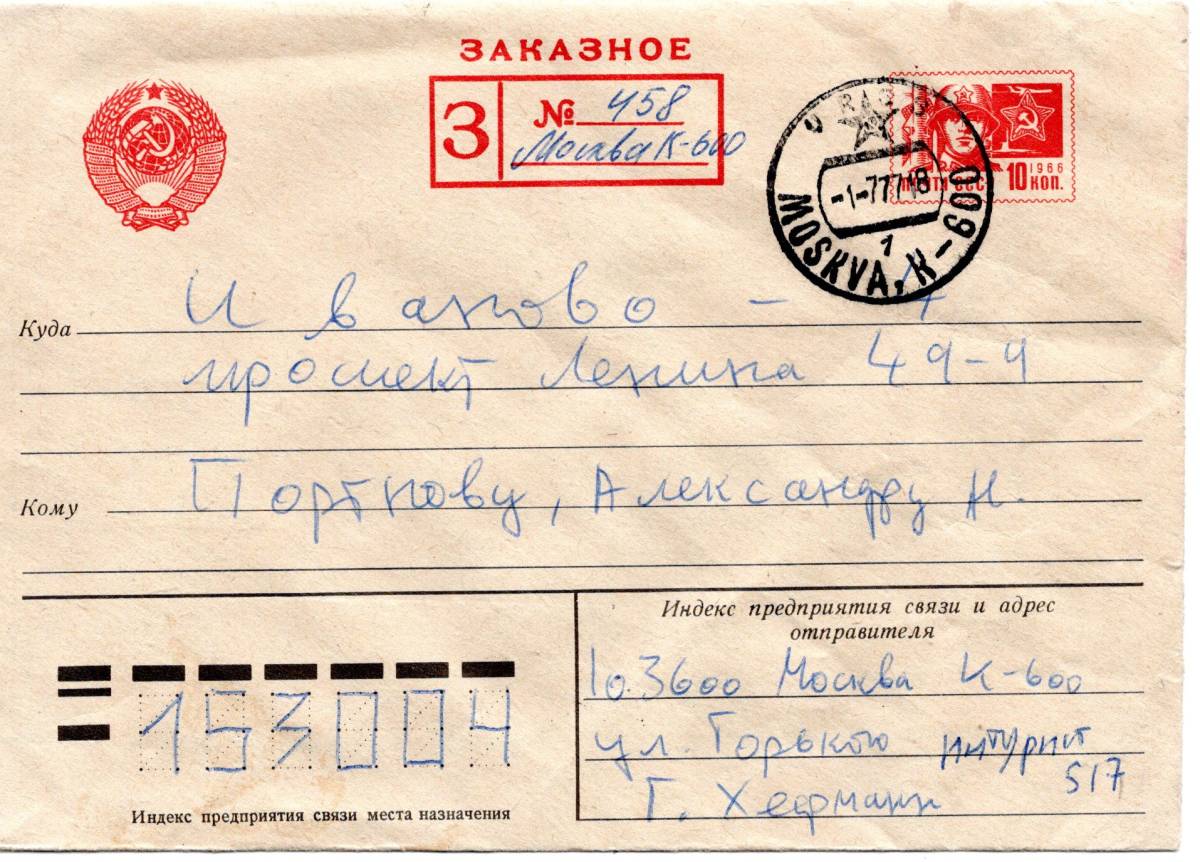 ЗАКАЗНОЕ
З
№ 458
Москва К-600
-1-7 77 18
1
MOSKVA, K-600
1966
ПОЧТА СССР 10 КОП.
Куда Иваново - 4
проспект Ленина 49-9
Кому Портнову, Александру Н.
Индекс предприятия связи и адрес
отправителя
103600 Москва К-600
ул. Горького интурист
517
Г. Хефманн
153004
Индекс предприятия связи места назначения